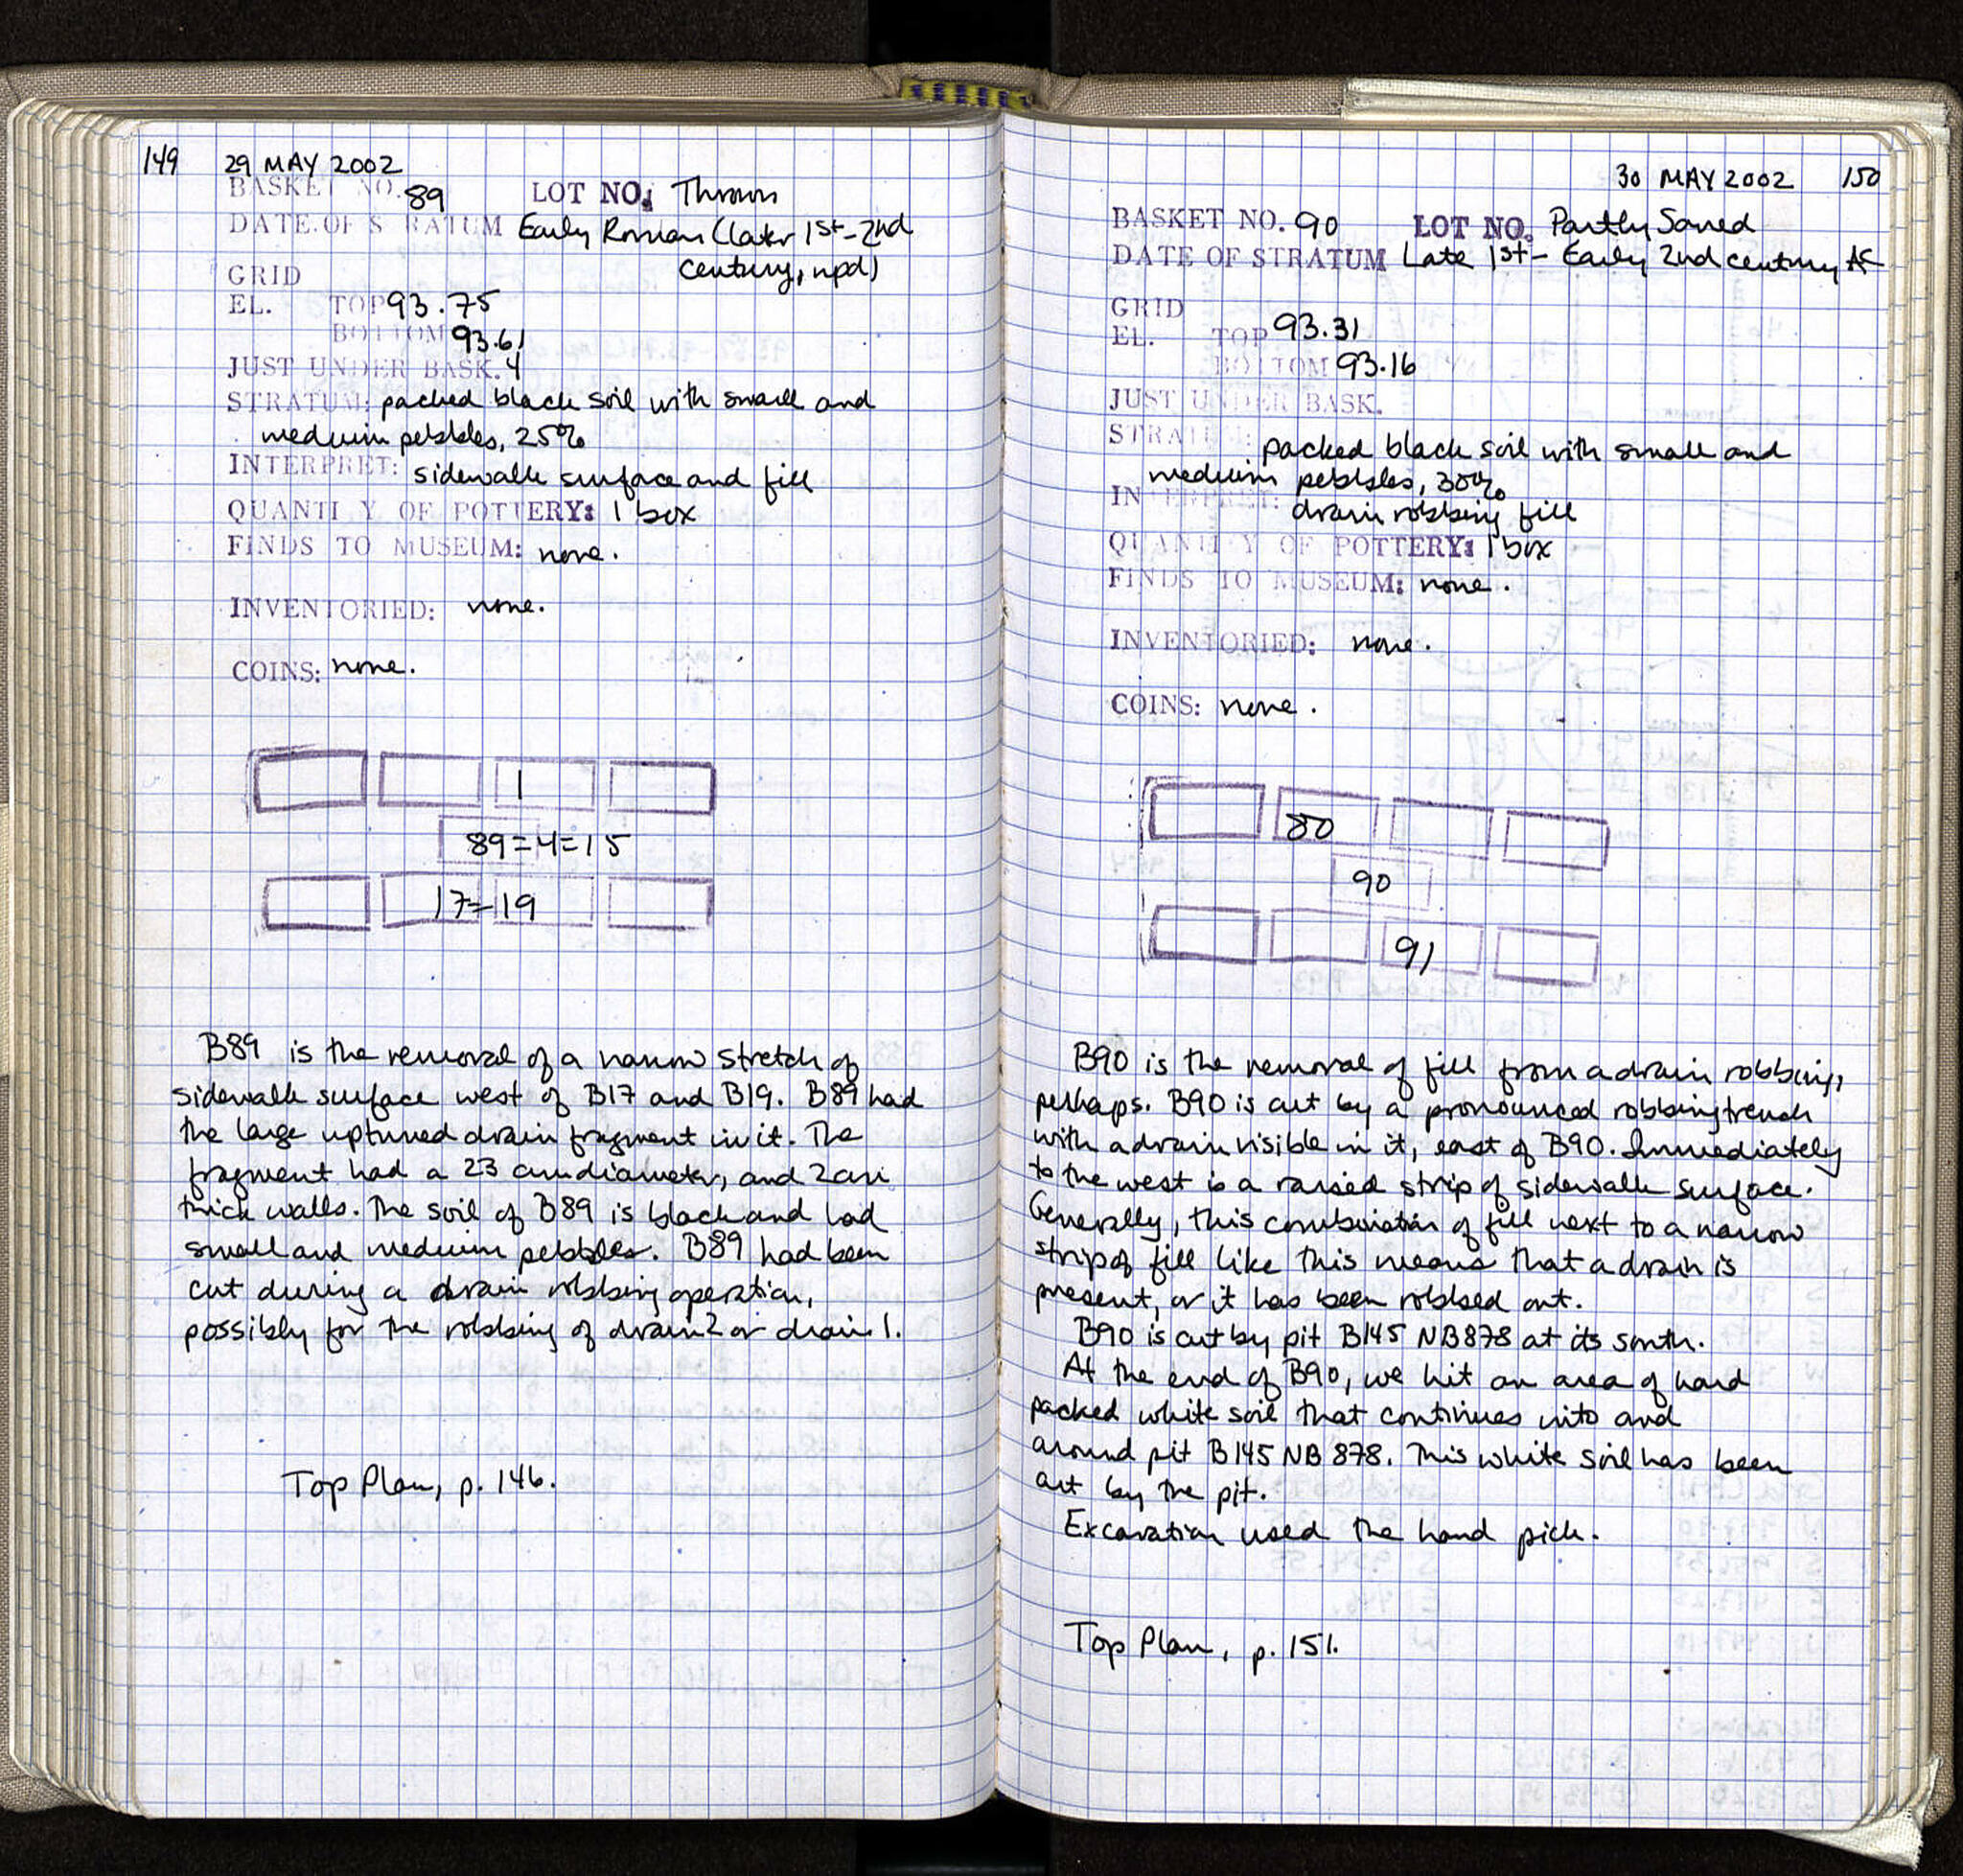 149 29 MAY 2002
BASKET NO. 89 LOT NO. Thrown
DATE OF STRATUM Early Roman (later 1st-2nd
century, npd)
GRID
EL. TOP 93.75
BOTTOM 93.61
JUST UNDER BASK. 4
STRATUM: packed black soil with small and
medium pebbles, 25%
INTERPRET: sidewalk surface and fill
QUANTITY OF POTTERY: 1 box
FINDS TO MUSEUM: none.
INVENTORIED: none.
COINS: none.
1
89=4=15
17=19
B89 is the removal of a narrow stretch of
sidewalk surface west of B17 and B19. B89 had
the large upturned drain fragment in it. The
fragment had a 23 cm diameter, and 2cm
thick walls. The soil of B89 is black and had
small and medium pebbles. B89 had been
cut during a drain robbing operation,
possibly for the robbing of drain 2 or drain 1.
Top Plan, p. 146.
30 MAY 2002 150
BASKET NO. 90 LOT NO. Partly Saved
DATE OF STRATUM Late 1st - Early 2nd century AC
GRID
EL. TOP 93.31
BOTTOM 93.16
JUST UNDER BASK.
STRATUM: packed black soil with small and
medium pebbles, 30%
INTERPRET: drain robbing fill
QUANTITY OF POTTERY: 1 box
FINDS TO MUSEUM: none.
INVENTORIED: none.
COINS: none.
80
90
91
B90 is the removal of fill from a drain robbing,
perhaps. B90 is cut by a pronounced robbing trench
with a drain visible in it, east of B90. Immediately
to the west is a raised strip of sidewalk surface.
Generally, this combination of fill next to a narrow
strip of fill like this means that a drain is
present, or it has been robbed out.
B90 is cut by pit B145 NB878 at its south.
At the end of B90, we hit an area of hard
packed white soil that continues into and
around pit B145 NB 878. This white soil has been
cut by the pit.
Excavation used the hand pick.
Top Plan, p. 151.